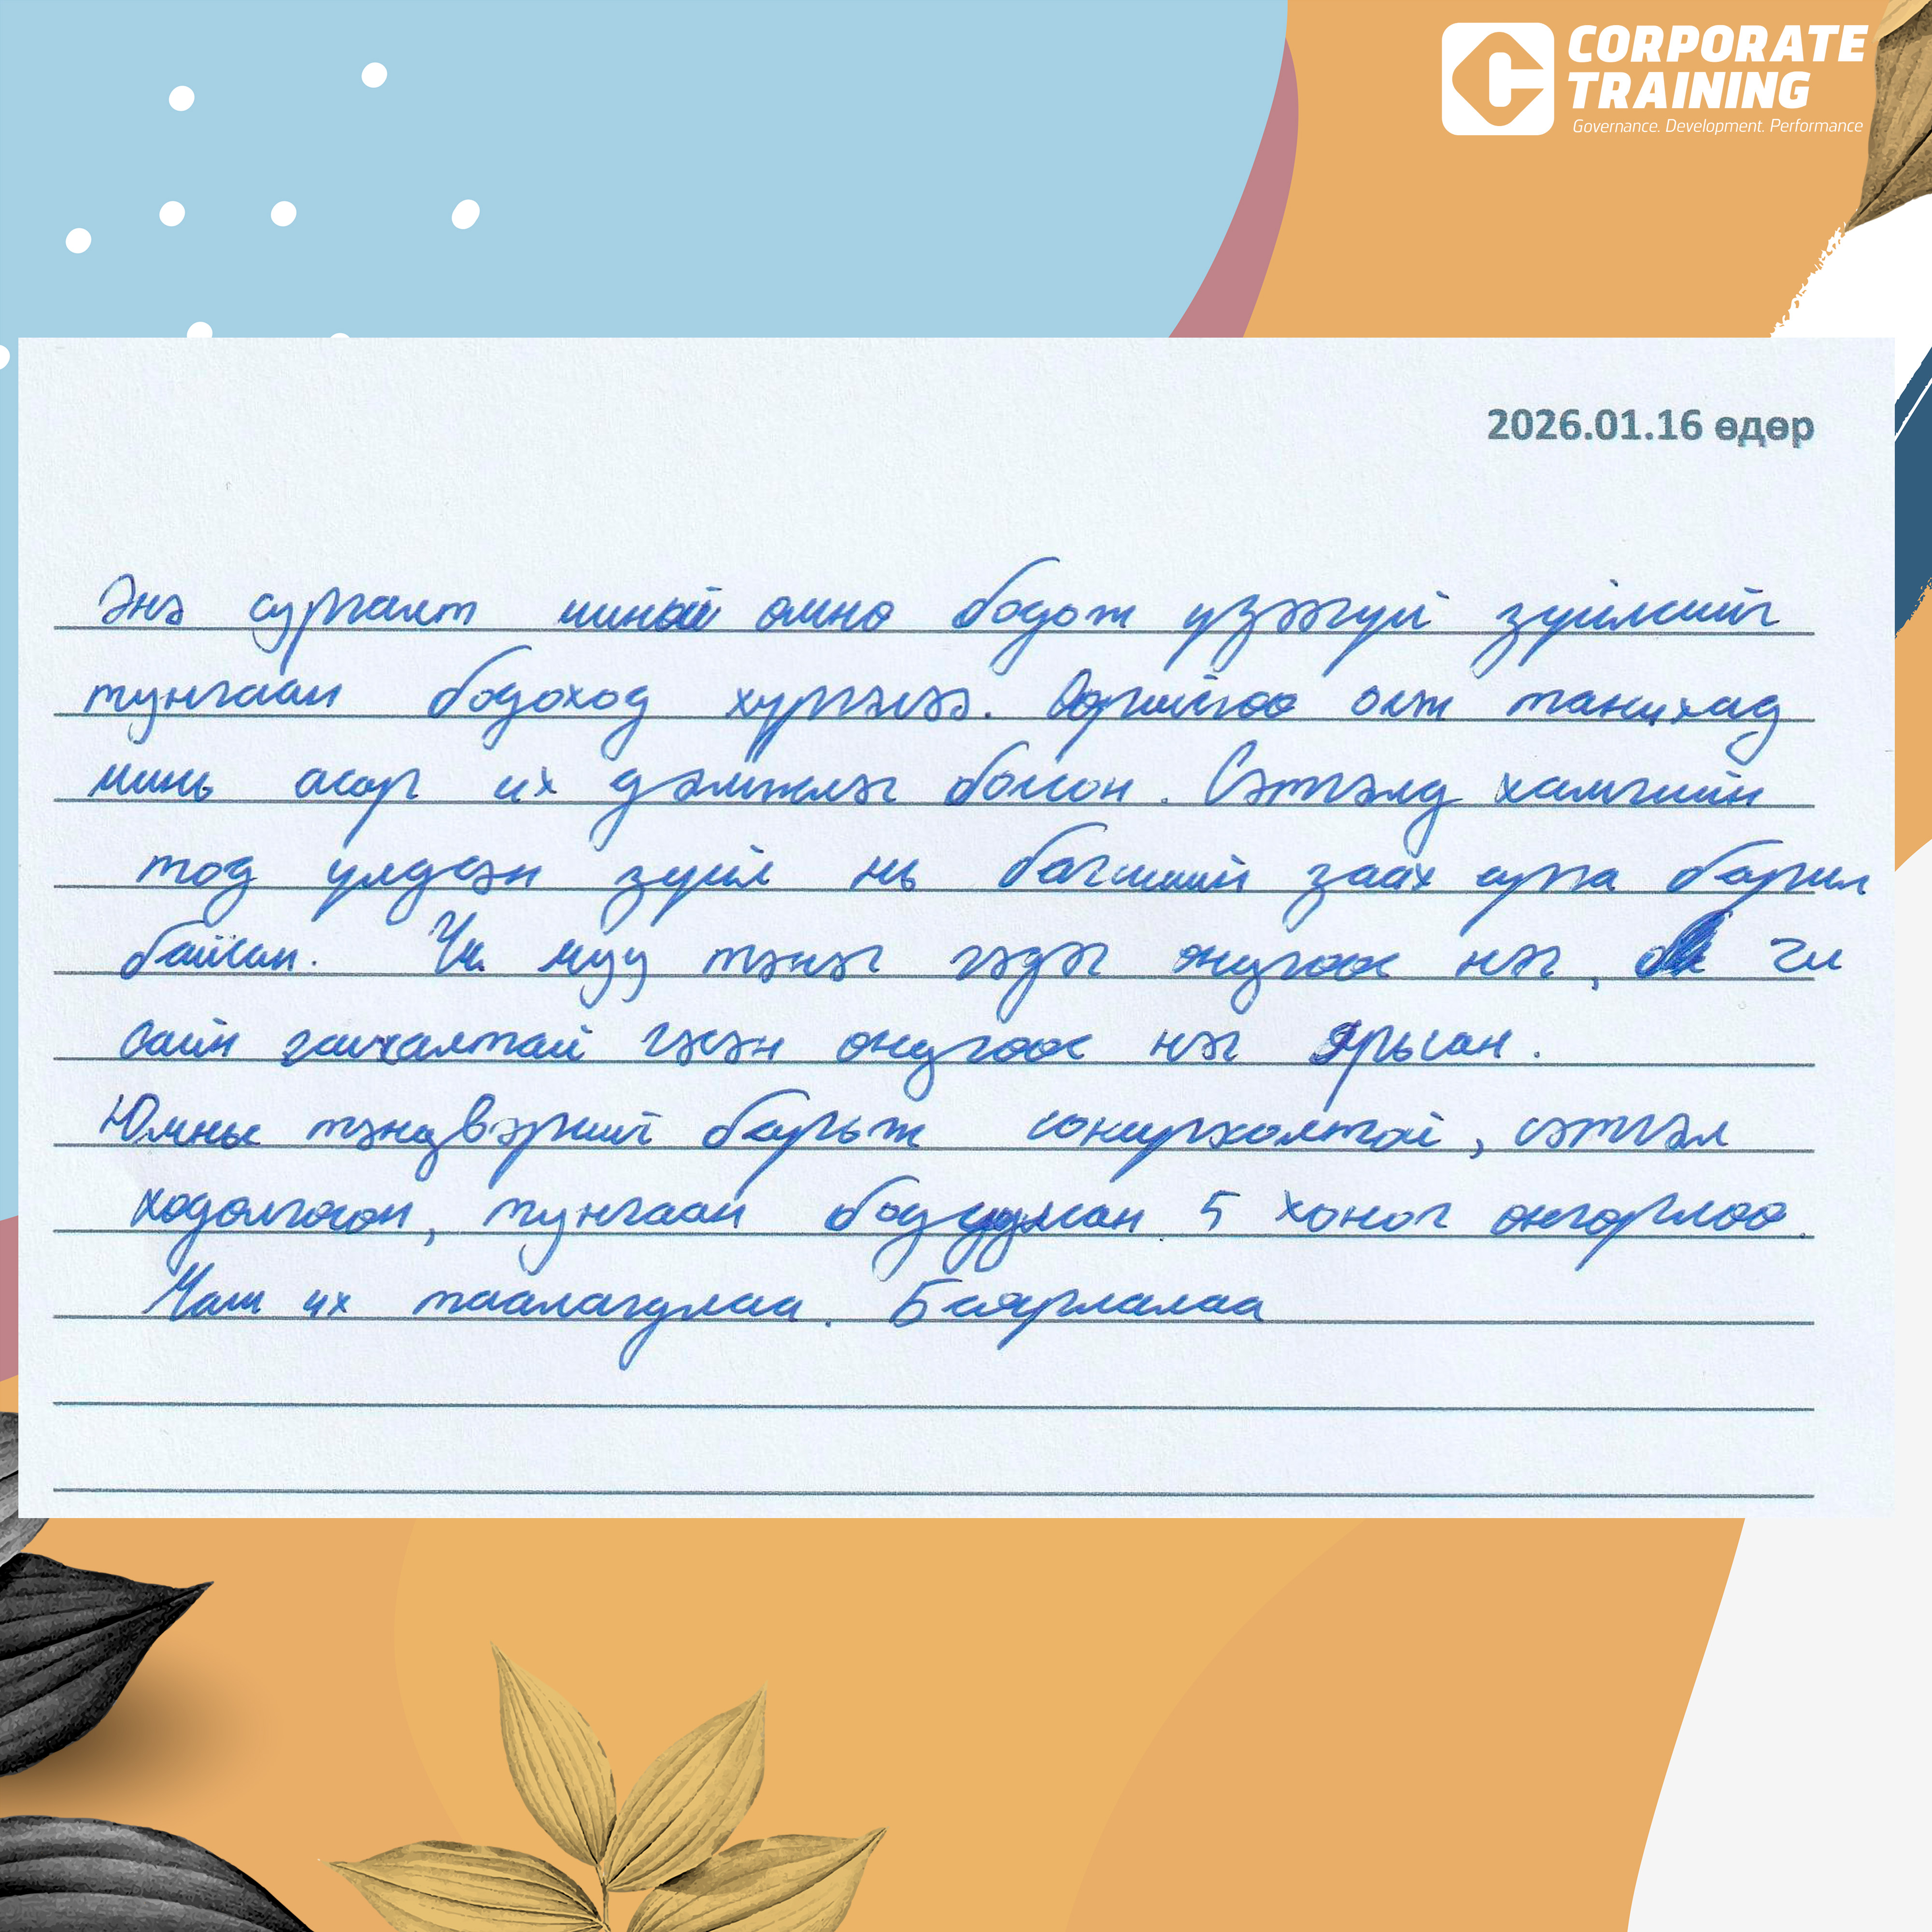 CORPORATE
TRAINING
Governance. Development. Performance
2026.01.16 өдөр
Энэ сургалт миний өмнө бодож үзээгүй зүйлсийг
тунгаан бодоход хүргэлээ. Өөрийгөө олж танихад
минь асар их дэмжлэг болсон. Сэтгэлд хамгийн
тод үлдсэн зүйл нь багшийн заах арга барил
байсан. Чи муу тэнэг гэдэг өнцгөөс нэг, чи
сайн гайхалтай гэсэн өнцгөөс нэг ярьсан.
Юмны тэнцвэрийг барьж сонирхолтой, сэтгэл
хөдөлгөсөн, тунгаан бодуулсан 5 хоног өнгөрлөө.
Маш их таалагдлаа. Баярлалаа